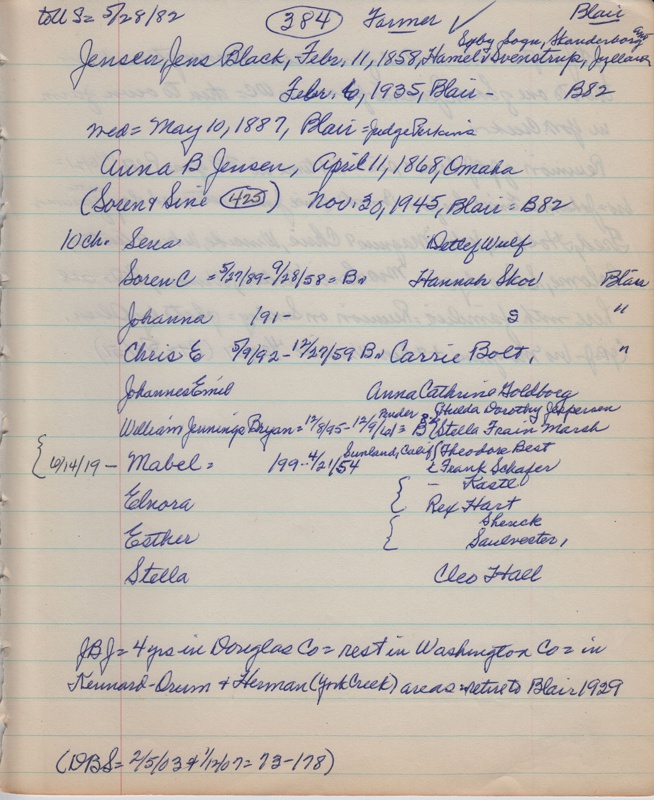 toll S = 5/28/82 (384) Farmer ✓ Blair
Sy by Sogn, Skanderborg Amp
Jensen, Jens Black, - Febr. 11, 1858, Hamel & Svenstrup, Jylland
Febr. 6, 1935, Blair - B82
wed = May 10, 1887, Blair = Judge Perkins
Anna B Jensen, April 11, 1868, Omaha
(Soren & Sine (425)) Nov. 30, 1945, Blair = B82
10 ch. Sena Detlef Wulf
Soren C = 5/27/89 - 9/28/58 = Bn Hannah Skov Blair
Johanna /91 - S "
Chris E 5/9/92 - 12/27/59 Bn Carrie Bolt, "
Johannes Emil Anna Cathrine Goldborg
Pender { Hulda Dorothy Jeppersen
William Jennings Bryan = 12/8/95 - 12/9/61 = B82 { Stella Frain Marsh
Sunland, Calif { Theodore Best
{ 6/14/19 - Mabel = 199 - 4/21/54 { Frank Schafer
{ - Kastl
Elnora Rex Hart
{ Shenck
Esther Saulvester,
Stella Cleo Hall
JBJ = 4 yrs in Douglas Co = rest in Washington Co = in
Kennard - Orum & Herman (York Creek) areas = retire to Blair 1929
(DBS = 2/5/03 & 1/12/07 = 73-178)